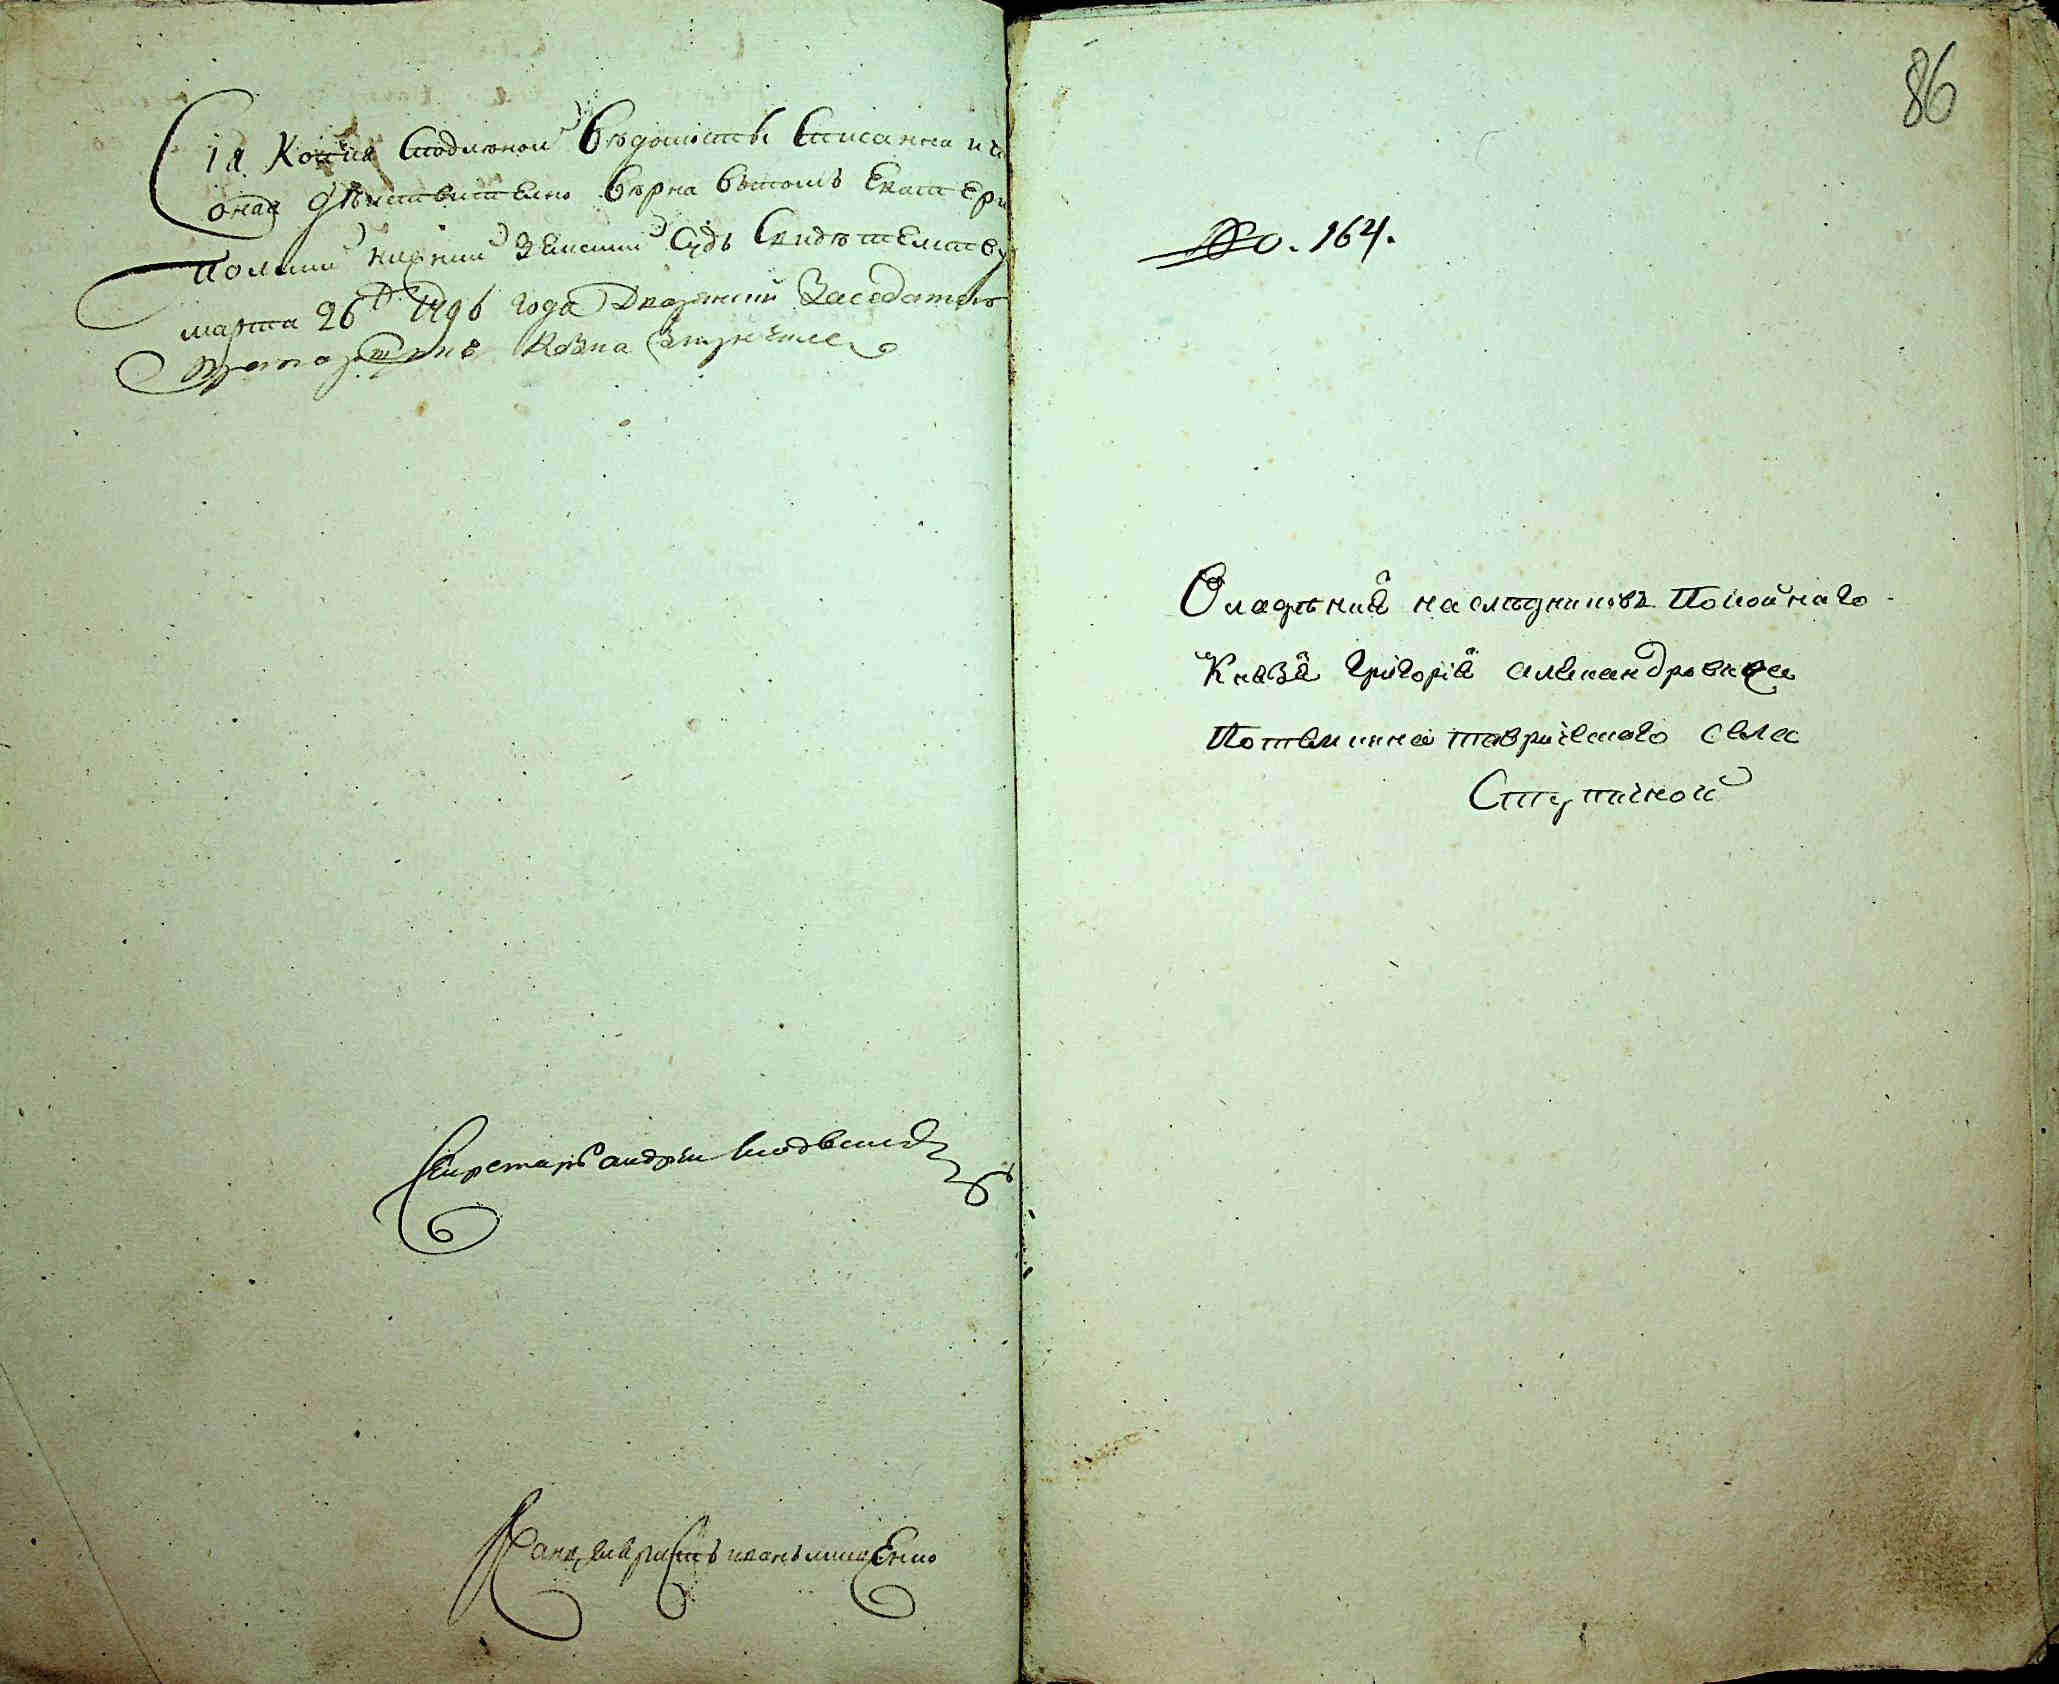 Сія Копія Сподлѣнной Вѣдомости Списанна и что
оная дѣйствително Вѣрна Втомъ Екатери
польскій нижній Земскій Судъ Свидѣтелству
марта 26 д 1796 года Дворянский Заседатель
Секретарь андрей
Канцеляристъ иванъ
86
No. 164.
Владѣния наслѣдниковъ Покойнаго
Князя Григорія Александровича
Потемкина таврическаго села
Ступиной